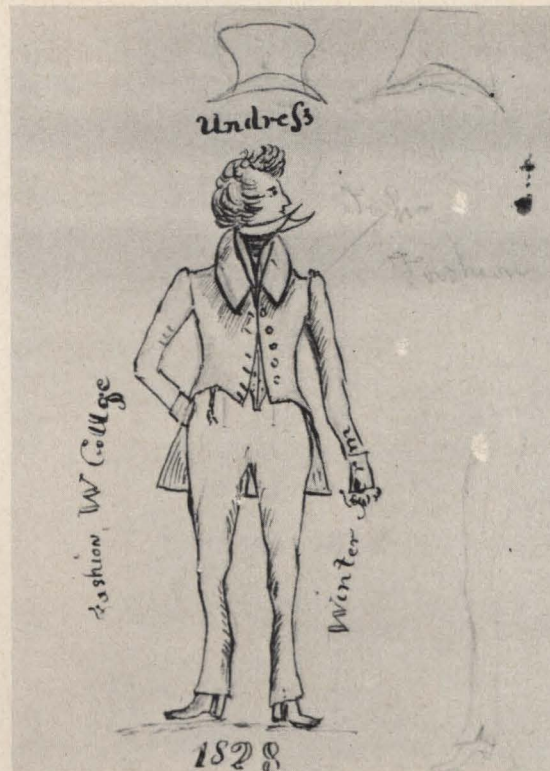 Undreſs
Fashion, W College
Winter
1828